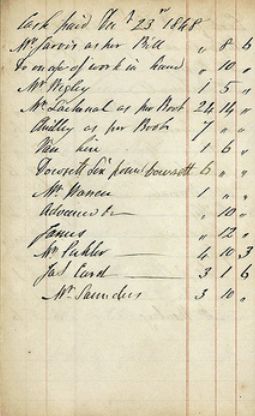 Cash paid Decr 23rd 1848
Mr Jarvis as per Bill " 8 6
To on ap of work in hand " 10 "
Mr Wigley 1 5 "
Mr as per Book 24 14 "
as per Book 7 " "
Van hire 1 6 "
Dowsett Six pound Dowsett 6 " "
Mr Warren 1 " "
Advanced " 10 "
James " 12 "
Mr 4 10 3
Jas Curd 3 1 6
Mr Saunders 3 10 "